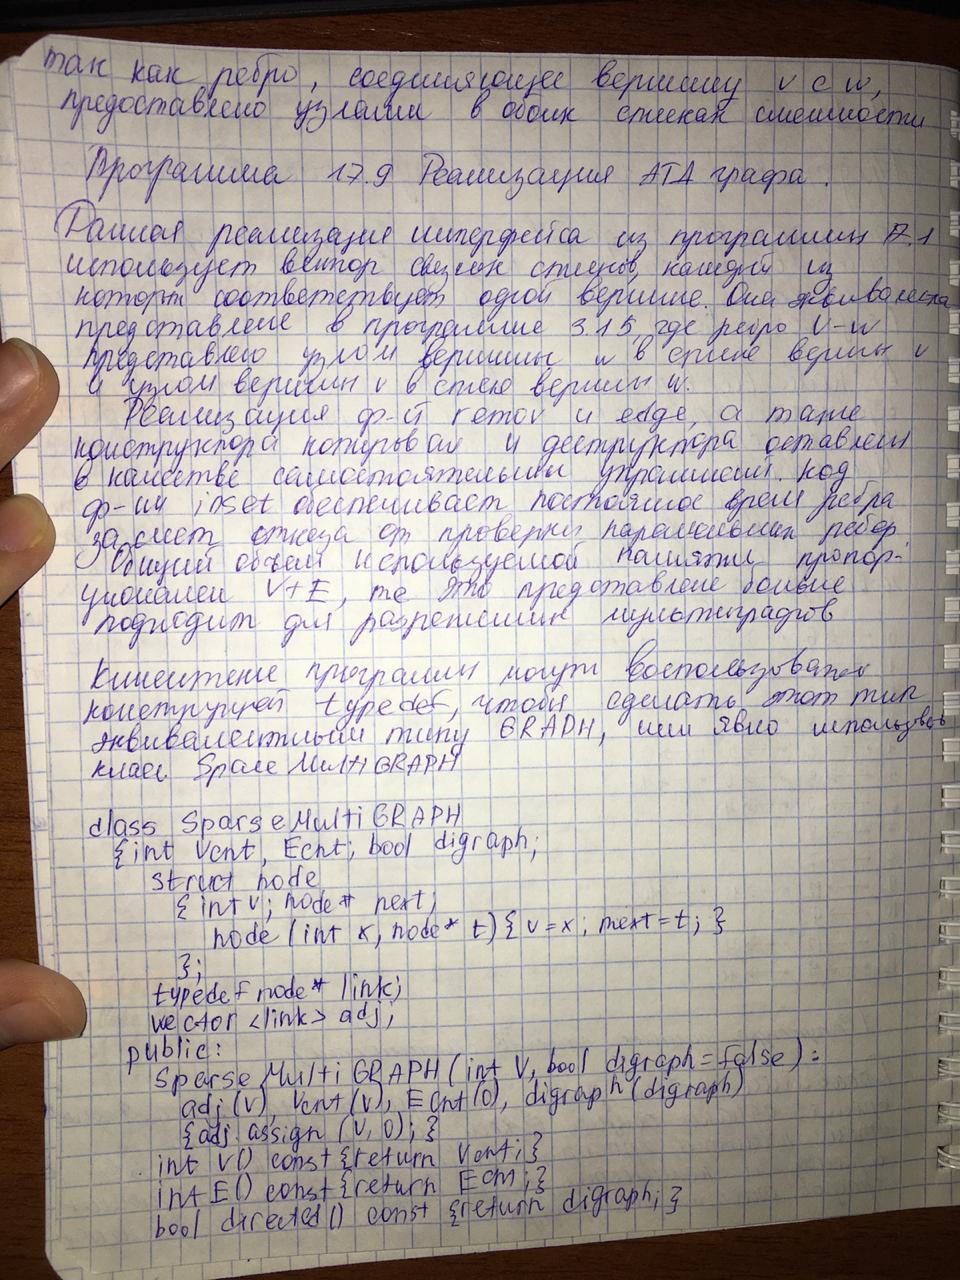 так как ребро, соединяющее вершину v с w,
предоставлено узлами в обоих списках смежности
Программа 17.9 Реализация АТД графа.
Данная реализация интерфейса из программы 17.1
использует вектор связных списков, каждый из
которых соответствует одной вершине. Она эквивалентна
представлене в программе 3.15, где ребро v-w
представлено узлом вершины w в списке вершины v
и узлом вершины v в списке вершины w.
Реализация ф-й remov и edge, а также
конструктора копирования и деструктора оставлены
в качестве самостоятельных упражнений. код
ф-ии inset обеспечивает постоянное время ребра
за счет отказа от проверки параллельных ребер
Общий объем используемой памяти пропор-
ционален V+E, те это представление больше
подходит для разреженных мультиграфов
Клиентские программы могут воспользоваться
конструкцией typedef, чтобы сделать этот тип
эквивалентным типу GRAPH, или явно использовав
класс Sparse Multi GRAPH
class Sparse Multi GRAPH
{int Vcnt, Ecnt; bool digraph;
struct node
{ int v; node* next;
node (int x, node* t) { v=x; next=t; }
};
typedef node* link;
vector <link> adj;
public:
Sparse Multi GRAPH (int V, bool digraph = false):
adj(v), Vcnt(v), Ecnt(0), digraph(digraph)
{adj. assign (V, 0); }
int V() const {return Vcnt;}
int E() const {return Ecnt;}
bool directed() const {return digraph;}